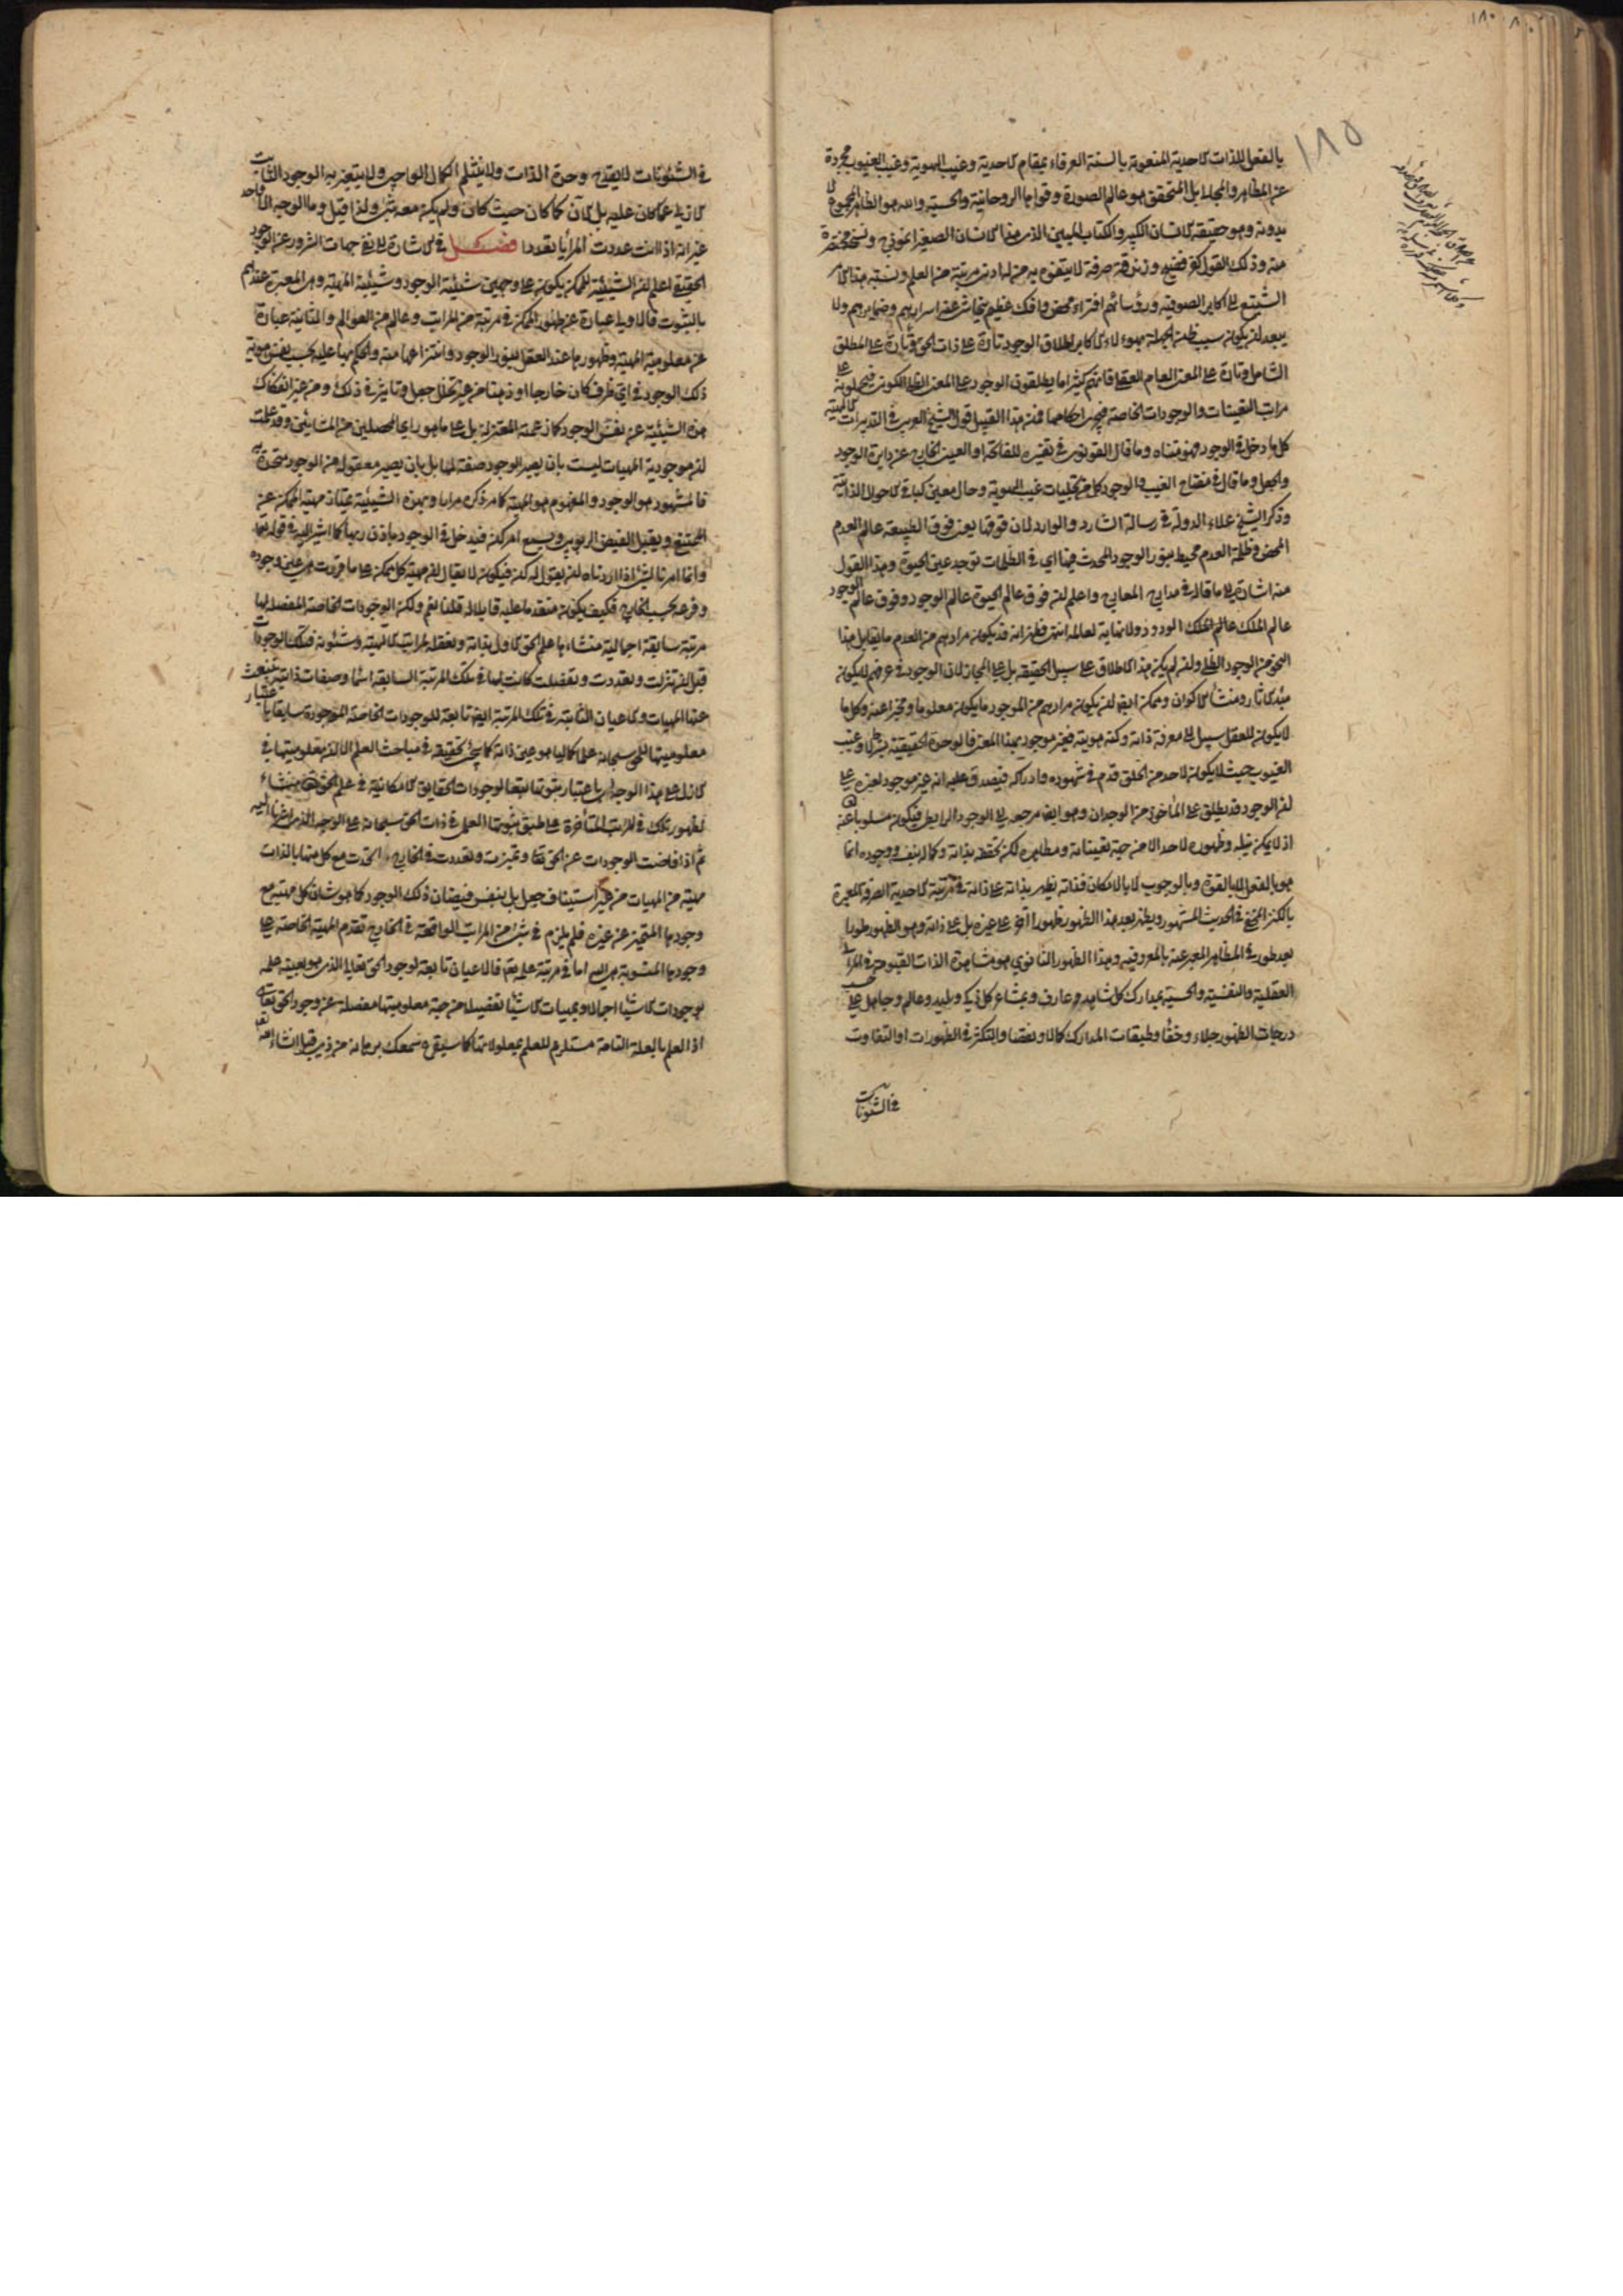 ١٨٠
١٨٥
بالفعل للذات الاحدية المنعوتة بالسنة العرفاء بمقام الاحدية وغيب الهوية وغيب الغيوب مجردة
عن المظاهر والمجالى بل المتحقق هو عالم الصورة وقواها الروحانية والحسية والله هو الظاهر المجموع لا
بدونه وهو حقيقة الانسان الكبير والكتاب المبين الذى هذا الانسان الصغير انموذج ونسخة مختصرة
منه وذلك القول كفر فضيح وزندقة صرفة لا يتفوه به من له ادنى مرتبة من العلم ونسبة هذا الامر
الشنيع الى اكابر الصوفية ورؤسائهم افتراء محض وافك عظيم يتحاشى عنه اسرارهم وضمايرهم ولا
يبعد ان يكون سبب ظن الجهلة بهؤلاء الاكابر اطلاق الوجود تارة على ذات الحق وتارة على المطلق
الشامل وتارة على المعنى العام العقلى فانهم كثيرا ما يطلقون الوجود على المعنى الظلى الكونى فيحملونه على
مراتب التعينات والوجودات الخاصة فيجرى احكامها فمن هذا القبيل قول الشيخ العربى فى التدبيرات الالهية
كل ما دخل فى الوجود فهو متناه وما قال القونوى فى تفسيره للفاتحة او العين الخارج عن دايرة الوجود
والجعل وما قال فى مفتاح الغيب والوجود كل من تجليات غيب الهوية وحال معين كباقى الاحوال الذاتية
وذكر الشيخ علاء الدولة فى رسالة الشارد والوارد لان فوقها يعنى فوق الطبيعة عالم العدم
المحض وظلمة العدم محيط بنور الوجود المحدث فيها اى فى الظلمات توجد عين الحيوة وهذا القول
منه اشارة الى ما قاله فى مدارج المعارج واعلم ان فوق عالم الحيوة عالم الوجود وفوق عالم الوجود
عالم الملك الودود ولا نهاية لعالمه انتهى فظهر انه قد يكون مرادهم من العدم ما يقابل هذا
النحو من الوجود الظلى وان لم يكن هذا الاطلاق على سبيل الحقيقة بل على المجاز لان الوجود فى عرفهم لا يكون
مبدء الاثار ومنشأ الاكوان وممكن ايضا ان يكون مرادهم من الموجود ما يكون معلوما ومخبرا عنه وكل ما
لا يكون للعقل سبيل الى معرفة ذاته وكنه هويته فغير موجود بهذا المعنى فالوحدة الحقيقية بشرط لا وغيب
الغيوب حيث لا يكون لاحد من الخلق قدم فى شهوده وادراكه فيصدق عليه انه غير موجود لغيره على
ان الوجود قد يطلق على الماخوذ من الوجدان وهو ايضا مرجعه الى الوجود الرابطى فيكون مسلوبا عنه
اذ لا يمكن نيله وظهوره لاحد الا من جهة تعيناته ومظاهره لكن تحققه بذاته وكماله بنفسه ووجوده انما
هو بالفعل لا بالقوة وبالوجوب لا بالامكان فذاته يظهر بذاته على ذاته فى مرتبة الاحدية الصرفة المعبرة
بالكنز المخفى فى الحديث المشهور ويظهر بعد هذا الظهور ظهورا اخر على غيره بل على ذاته وهو الظهور طورا
بعد طور فى المظاهر المعبر عنه بالمعروفية وهذا الظهور الثانوى هو مشاهدة الذات القيومة فى المرائى
العقلية والنفسية والحسية بمدارك كل شاهد وعارف وبمشاعر كل ذكى وبليد وعالم وجاهل على حسب
درجات الظهور جلاء وخفاء وطبقات المدارك كمالا ونقصا والتكثر فى الظهورات او التفاوت
فى الشئونات
فى الشئونات لا يقدح وحدة الذات ولا ينثلم الكمال الواجبى ولا يتغير به الوجود الثابت
الازلى عما كان عليه بل الآن كما كان حيث كان ولم يكن معه شئ ولذا قيل وما الوجه الا واحد
غير انه اذا انت عددت المرايا تعددا فصــل فى الاشارة الى نفى جهات الشرور عن الوجود
الحقيقى اعلم ان الشيئية للممكن يكون على وجهين شيئية الوجود وشيئية المهية وهى المعبرة عندهم
بالثبوت فالاولى عبارة عن ظهور الممكن فى مرتبة من المراتب وعالم من العوالم والثانية عبارة
عن معلومية المهية وظهورها عند العقل بنور الوجود وانتزاعها منه والحكم بها عليه بحسب نفس هوية
ذلك الوجود فى اى ظرف كان خارجا او ذهنا من غير تخلل جعل وتاثير فى ذلك ومن غير انفكاك
هذه الشيئية عن نفس الوجود كما زعمته المعتزلة بل على ما هو راى المحصلين من المشائين وقد علمت
ان موجودية المهيات ليست بان يصير الوجود صفة لها بل بان يصير معقولة من الوجود متحدة به
فالمشهود هو الوجود والمفهوم هو المهية كما مر ذكره مرارا وبهذه الشيئية يمتاز مهية الممكن عن
الممتنع ويقبل الفيض الربوبى ويسمع امر كن فيدخل فى الوجود باذن ربها كما اشير اليه فى قوله تعالى
وانما امرنا لشئ اذا اردناه ان نقول له كن فيكون لا يقال ان مهية كل ممكن على ما قررت هى عين وجوده
وفرعه بحسب الخارج فكيف يكون متقدما عليه قابلا له قلنا نعم ولكن الوجودات الخاصة المفصلة لها
مرتبة سابقة اجمالية منشاءها علم الحق الاول بذاته وتعقله لمراتب الالهية وشئونه فتلك الوجودات
قبل ان تنزلت وتعددت وتفصلت كانت لها فى تلك المرتبة السابقة اسماء وصفات ذاتية ينبعث
عنها المهيات والاعيان الثابتة فى تلك المرتبة ايضا تابعة للوجودات الخاصة الموجودة سابقا باعتبار
معلوميتها للحق سبحانه علما كماليا هو عين ذاته كما يجئ تحقيقه فى مباحث العلم الا ان معلوميتها فى
الازل على هذا الوجه اى باعتبار ثبوتها تبعا لوجودات الحقايق الامكانية فى علم الحق تعالى منشاء
لظهور تلك فى المراتب المتاخرة على طبق ثبوتها العلمى فى ذات الحق سبحانه على الوجه الذى اشرنا اليه
ثم اذا فاضت الوجودات عن الحق تعالى وتميزت وتعددت فى الخارج اتحدت مع كل منها بالذات
مهية من المهيات من غير استيناف جعل بل بنفس فيضان ذلك الوجود كما هو شان كل مهية مع
وجودها المتميز عن غيره فلم يلزم فى شئ من المراتب الواقعة فى الخارج تقدم المهية الخاصة على
وجودها المنسوبة هى اليه اما فى مرتبة علمه تعالى فالاعيان تابعة لوجود الحق تعالى الذى هو بعينه علمه
بوجودات الاشياء اجمالا وبمهيات الاشياء تفصيلا من جهة معلوميتها مفصلة عن وجود الحق تعالى
اذ العلم بالعلة التامة مستلزم للعلم بمعلولاتها كما سيقرع سمعك برهانه من ذى قبل انشاء الله تعالى